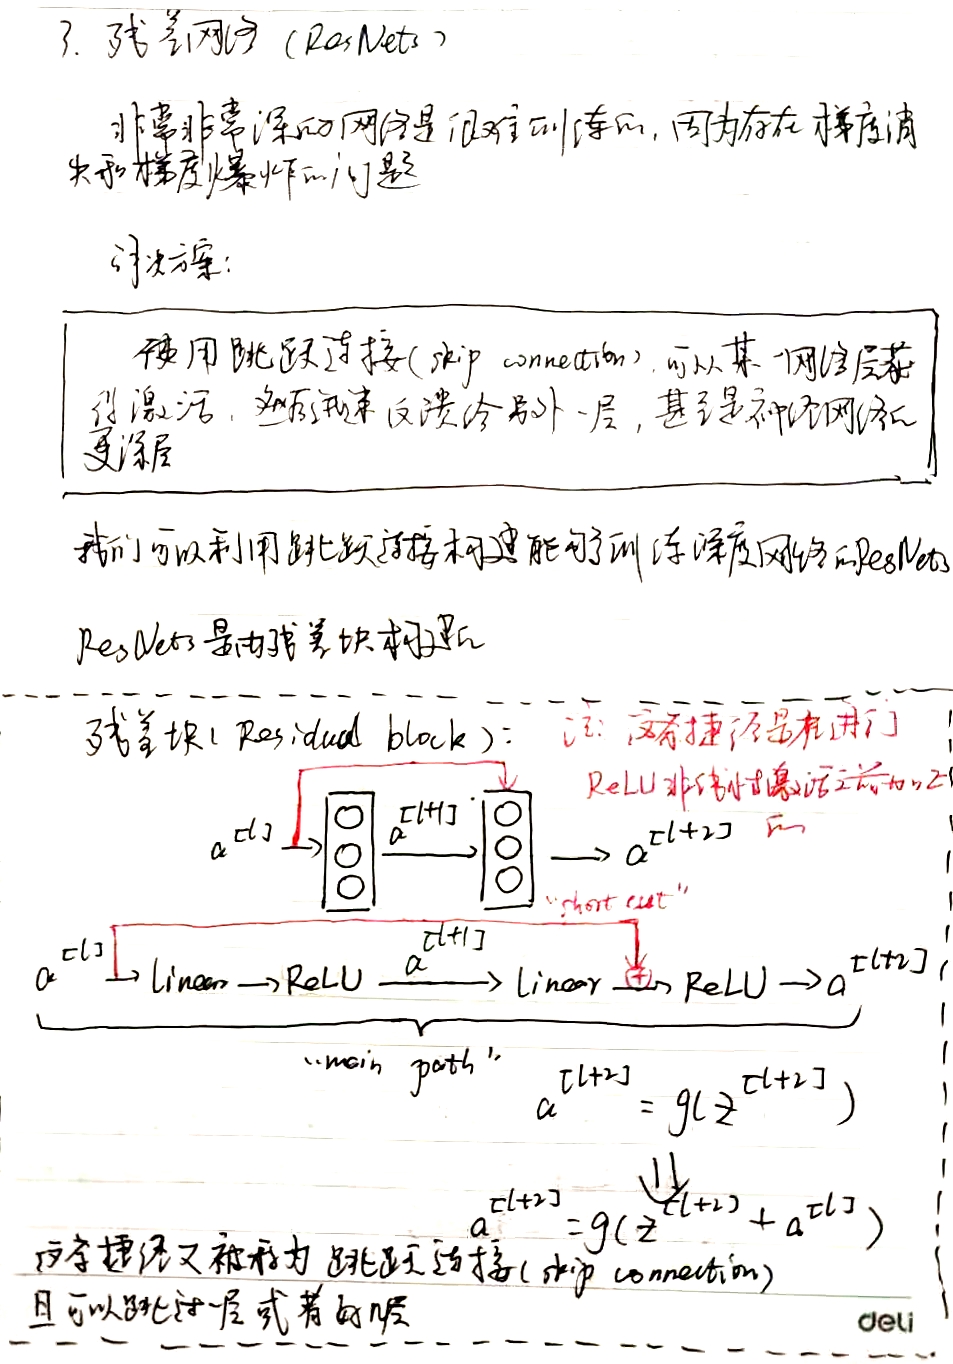 3. 残差网络 (ResNets)
非常非常深的网络是很难训练的, 因为存在梯度消
失和梯度爆炸的问题
解决方案:
使用跳跃连接(skip connection), 可从某一网络层获
得激活, 然后迅速反馈给另外一层, 甚至是神经网络的
更深层
我们可以利用跳跃连接构建能够训练深度网络的ResNets
ResNets是由残差块构建的
残差块(Residual block): 注: 这条捷径是在进行
ReLU非线性激活之前加上
的
a[l] a[l+1] a[l+2]
"short cut"
a[l] → Linear → ReLU a[l+1] → Linear + → ReLU → a[l+2]
"main path"
a[l+2] = g(z[l+2])
⇓
a[l+2] = g(z[l+2] + a[l])
这条捷径又被称为跳跃连接(skip connection)
且可以跳过一层或者好几层
deli